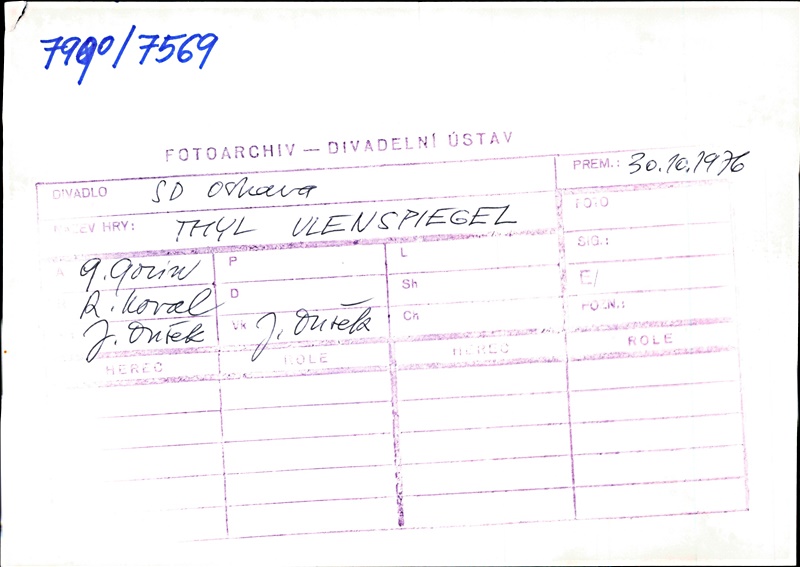 7990/7569
FOTOARCHIV — DIVADELNÍ ÚSTAV
DIVADLO SD Ostrava PREM.: 30.10.1976
NÁZEV HRY: THYL ULENSPIEGEL FOTO
SIG.:
A G. Gorin P L E/
R. Koval D Sh POZN.:
J. Dušek Vk J. Dušek Ch
HEREC ROLE HEREC ROLE